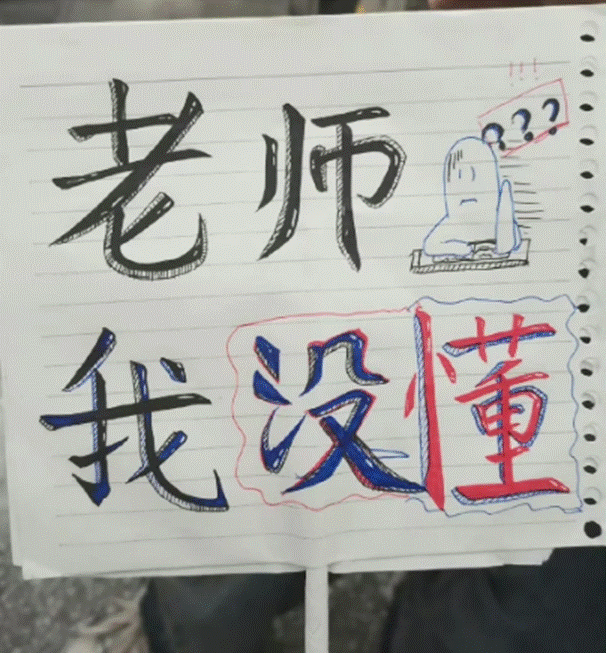 老师
!!!
???
我没懂